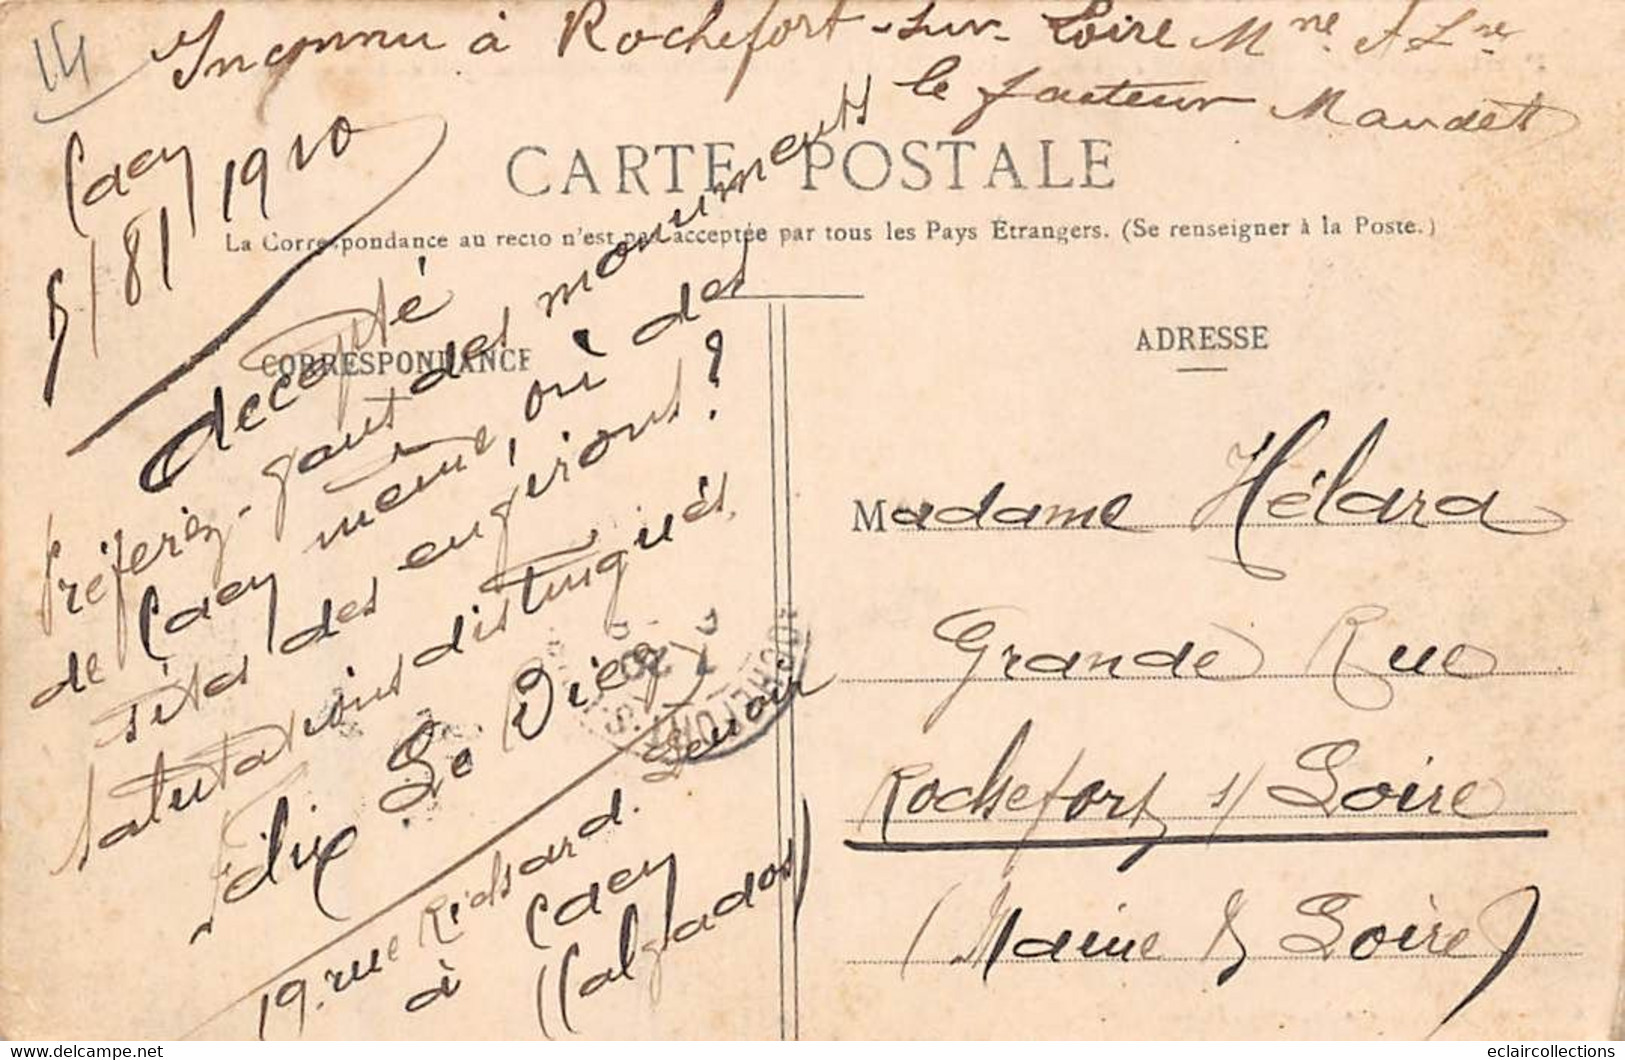 14
Inconnu à Rochefort-sur-Loire Mne & Lre
le facteur Maudet
CARTE POSTALE
La Correspondance au recto n'est pas acceptée par tous les Pays Étrangers. (Se renseigner à la Poste.)
Caen
5/8/1910
CORRESPONDANCE
accepté
préferez-
des monuments
de Caen même, où des
sites des environs?
Salutations distinguées.
Félix Le
19. rue Richard Lenoir
à Caen
(Calvados)
ADRESSE
Madame Hélard
Grande Rue
Rochefort s/ Loire
(Maine & Loire)
ROCHEFORT-S
eclaircollections